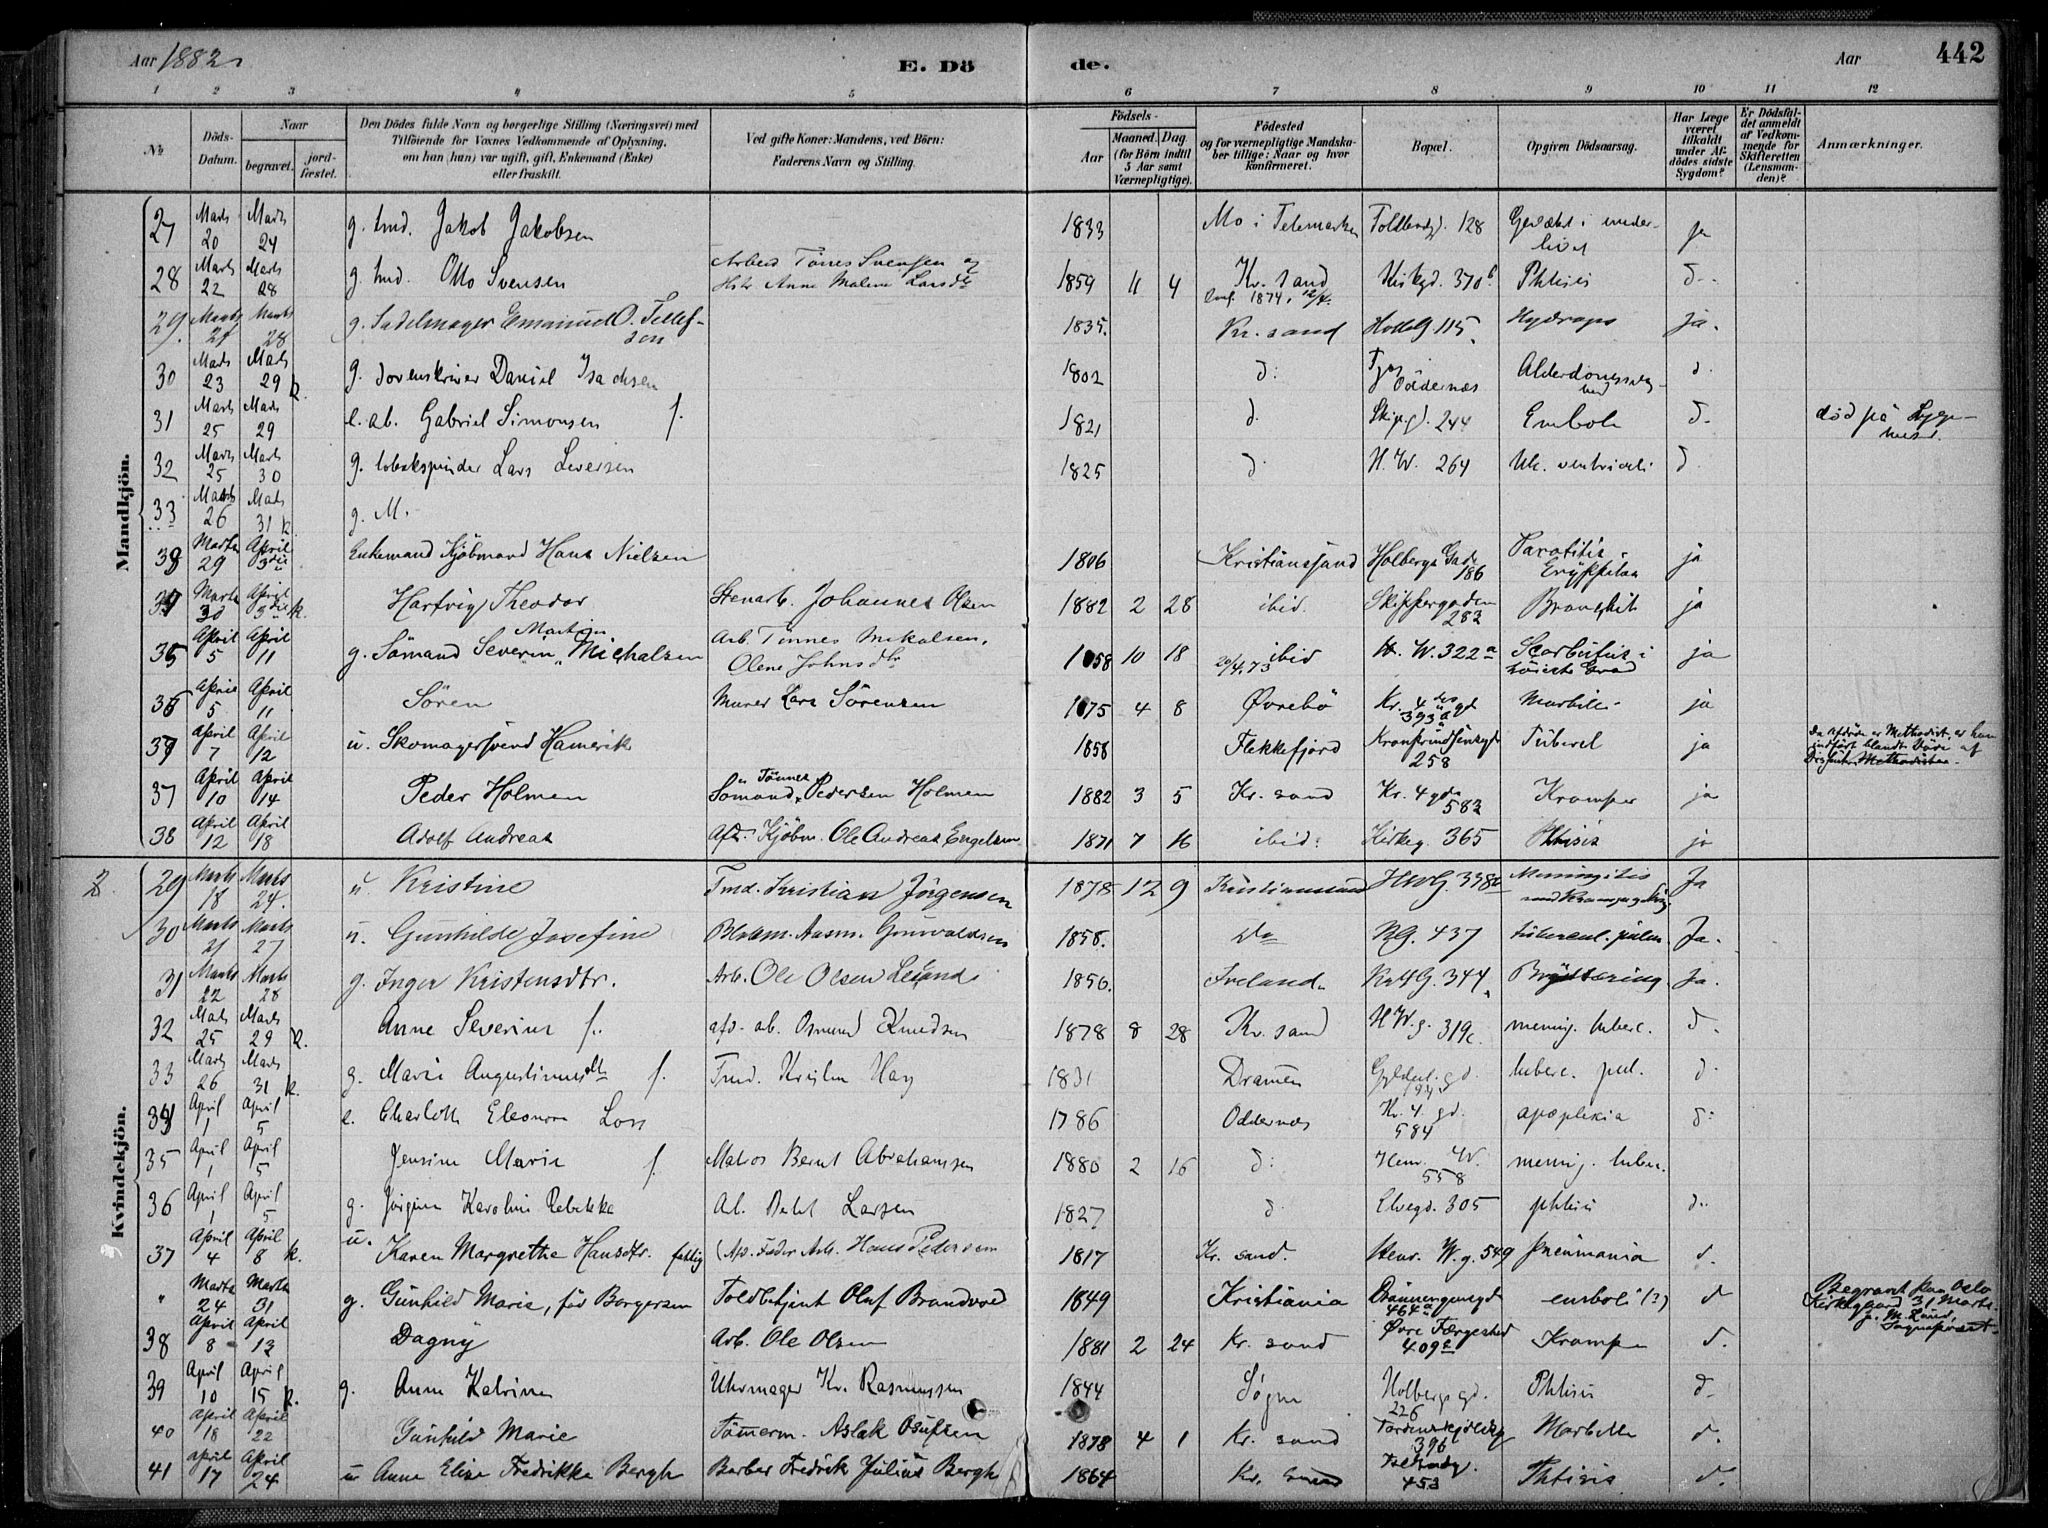 Aar 1882.
E. Dö
de.
Aar
442
1 2 3 4 5 6 7 8 9 10 11 12
№
Döds-Datum.
Naar
begravet.
jord-fæstet.
Den Dödes fulde Navn og borgerlige Stilling (Næringsvei) med Tilföiende for Voxnes Vedkommende af Oplysning, om han (hun) var ugift, gift, Enkemand (Enke) eller fraskilt.
Ved gifte Koner: Mandens, ved Börn: Faderens Navn og Stilling.
Födsels-
Aar
Maaned. Dag
(for Börn indtil 5 Aar samt Værnepligtige).
Födested og for værnepligtige Mandskaber tillige: Naar og hvor konfirmeret.
Bopæl.
Opgiven Dödsaarsag.
Har Læge været tilkaldt under Afdödes sidste Sygdom?
Er Dödsfaldet anmeldt af Vedkommende for Skifteretten (Lensmanden)?
Anmærkninger.
Mandkjön.
27 Marts 20 Marts 24 g. tmd. Jakob Jakobsen 1833 Mo i Telemarken Toldbodgd. 128 ja
28 Marts 22 Marts 28 g. tmd. Otto Svensen Arbeid Tönes Svensen og Anne Malene Larsdtr 1859 11 4 Kr. sand Conf. 1874, 12/4. Kirkgd. 370b Phtisis d.
29. Marts 21 Marts 28 g. Sadelmager Emanuel O. Tellefsen 1835. Kr. sand HolbG 115. Hydrops ja.
30 Marts 23 Marts 29 k. g. Daniel Isachsen 1802 d: Oddernæs d.
31 Marts 25 Marts 29 e. ab. Gabriel Simonsen f. 1821 d. Skipg. 244 Emboli d. död på Sygehuset.
32 Marts 25 Marts 30 g. tobakspinder Lars Seversen 1825 d. H. W. 264 Ulc. ventriculi d
33 Marts 26 Marts 31 k. g. M.
Marts 29 April 3die Enkemand Kjöbmand Hans Nielsen 1806 Kristianssand Holbergs Gade 186 Parotitis ja
Marts 30 April 3die k. Hartvig Theodor Stenarb. Johannes Olsen 1882 2 28 ibid. Skippergaden 283 Bronchit ja
35 April 5 April 11 g. Sömand Severin Martin Michalsen Arb. Tönnes Mikalsen, Olene Johnsdtr 1858 10 18 ibid 20/4.73 H. W. 322a Scorbutus i höieste Grad ja
36 April 5 April 11 Sören Murer Lars Sörensen 1875 4 8 Øvrebö Kr. 4des gd 393a Morbili ja
April 7 April 12 u. Skomagersvend Hamerik 1858 Flekkefjord Kronprindsensgd 258 Tüberel ja Da afdöde er Methodist, er han indfört blandt Döde af Dissenter Methodister.
37 April 10 April 14 Peder Holmen Sömand Tönnes Pedersen Holmen 1882 3 5 Kr. sand Kr. 4 gde 582 Kramper ja
38 April 12 April 18 Adolf Andreas Afd. Kjöbm. Ole Andreas Engelsen 1871 7 16 ibid: Kirkeg. 365 Phtisis ja
Kvindekjön.
29 Marts 18 Marts 24. u Kristine Tmd. Kristian Jörgensen 1878 12 9 Kristianssand HWG. 338b Meningitis Ja
30 Marts 21 Marts 27 u. Gunhilde Josefine 1858. Do KG. 437 tubercul. pulm. Ja.
31 Marts 22 Marts 28 g. Inger Kristensdtr. Arb. Ole Olsen Leland 1856. Iveland. 344. Brystæring Ja.
32 Marts 25 Marts 29 k. Anne Severine f. afd. ab. Osmund Knudsen 1878 8 28 Kr. sand H W. g. 319c mening. tuberc. d.
33 Marts 26 Marts 31 k. g. Marie Augustinusdtr f. Tmd. Kristen Hay 1831 Dramen Gyldenl. gd. tuberc. pul. d.
34 April 1 April 5 e. Charlotte Eleonora Loss 1786 Oddernæs Kr. 4. gd. 584 apoplexia d:
35 April 1 April 5 Jensine Marie f. Matros Bernt Abrahamsen 1880 2 16 d: Henr. W. 558 mening. tuber.
36 April 1 April 5 g. Jörgine Karoline Rebekka Ab. Larsen 1827 d Elvegd. 305 phtisis d.
37 April 4 April 8 k. u. Karen Margrethe Hansdtr. fattig (Afd. Fader Arb. Hans Pedersen 1817 Kr. sand. Henr. W. g. 549 Pneumania d.
" Marts 24 Marts 31 g. Gunhild Marie, föd Borgersen Toldbetjent Oluf Brandvold 1849 Kristiania Dronningensgd 464a emboli (?) d Begravet paa Oslo Kirkegaard 31 Marts. M. Lund, Sognepræst.
38 April 8 April 13 Dagny Arb. Ole Olsen 1881 2 24 Kr. sand Øvre Færgested 409c Krampe d.
39 April 10 April 15 k. g. Anne Katrine Uhrmager Kr. Rasmussen 1844 Søgne Holbergs gd. 226 Phtisis d.
40 April 18 April 22 Gunhild Marie Tömerm. Aslak Osufsen 1878 4 1 Kr. sand Tordenskjoldsg 396 Morbille d.
41 April 17 April 24 u Anne Elise Fredrikke Bergh Barber Fredrik Julius Bergh 1864 Kr. sand 453 Phtisis d.